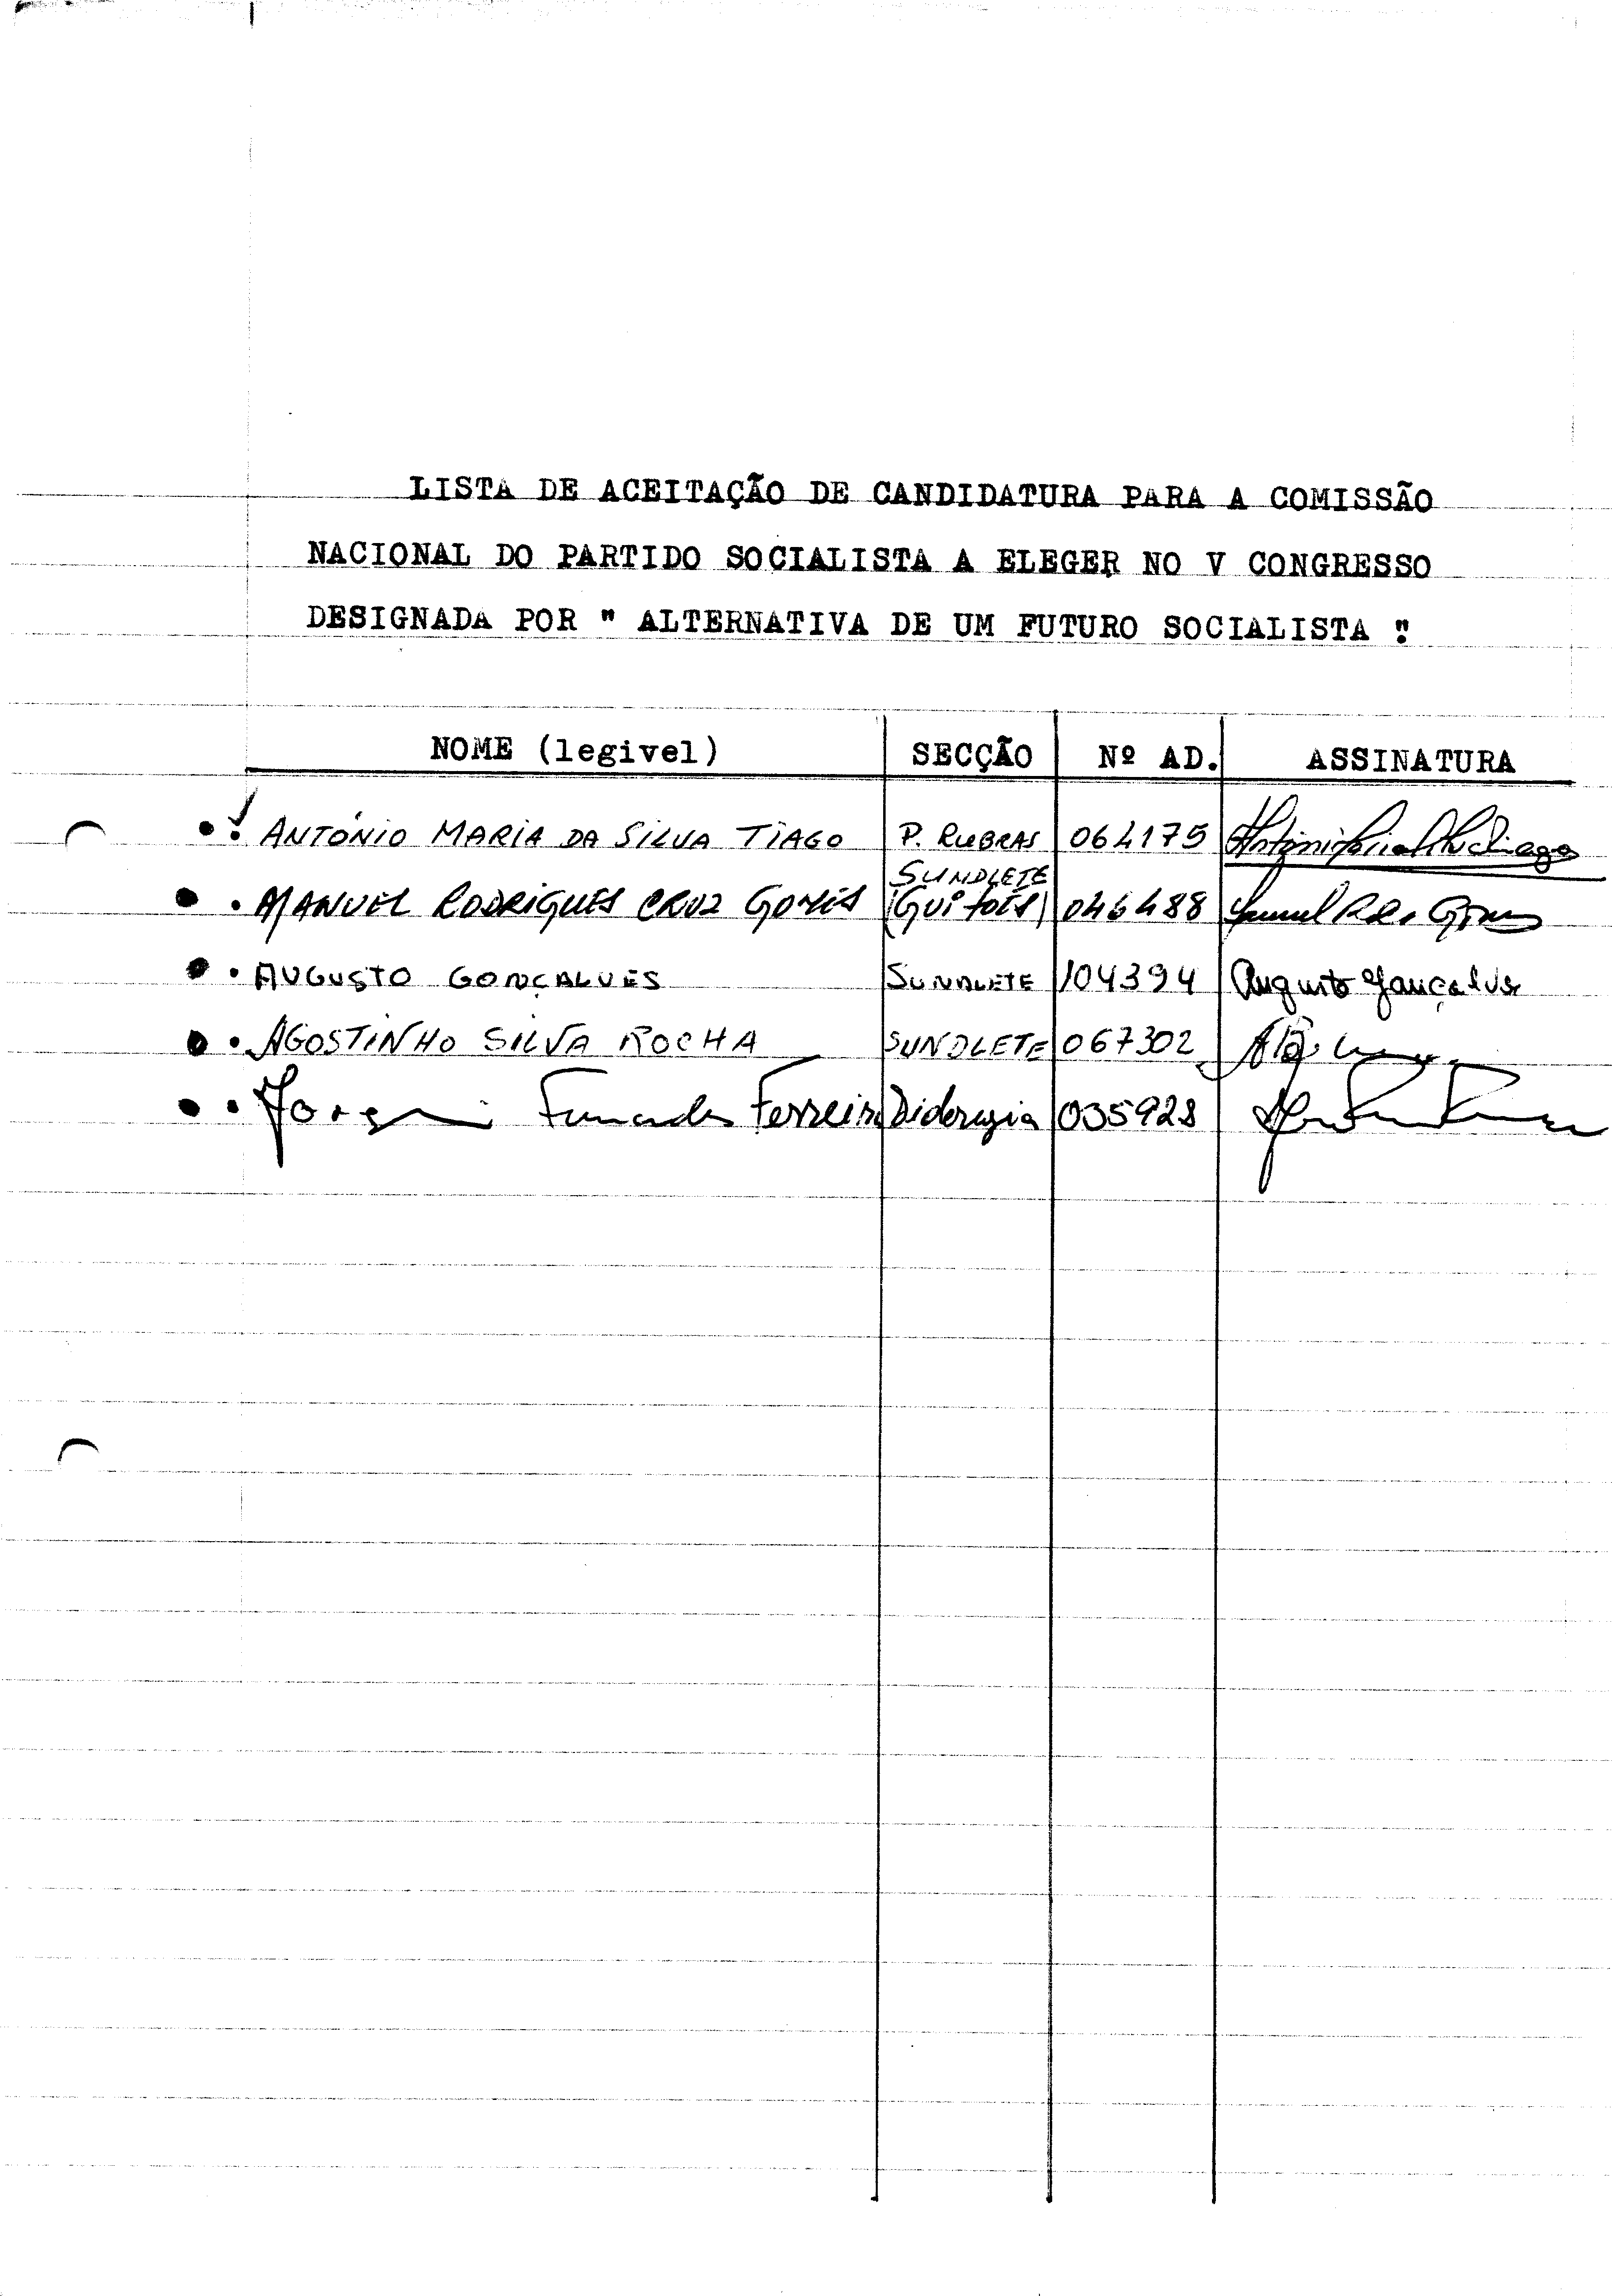 LISTA DE ACEITAÇÃO DE CANDIDATURA PARA A COMISSÃO
NACIONAL DO PARTIDO SOCIALISTA A ELEGER NO V CONGRESSO
DESIGNADA POR " ALTERNATIVA DE UM FUTURO SOCIALISTA "
NOME (legivel) SECÇÃO Nº AD. ASSINATURA
ANTÓNIO MARIA DA SILVA TIAGO P. RUBRAS 064175
SUNDLETE
MANUEL RODRIGUES CRUZ GOMES 046488
AUGUSTO GONÇALVES SUNDLETE 104394 Augusto Gonçalves
AGOSTINHO SILVA ROCHA SUNDLETE 067302
Ferreira 035928